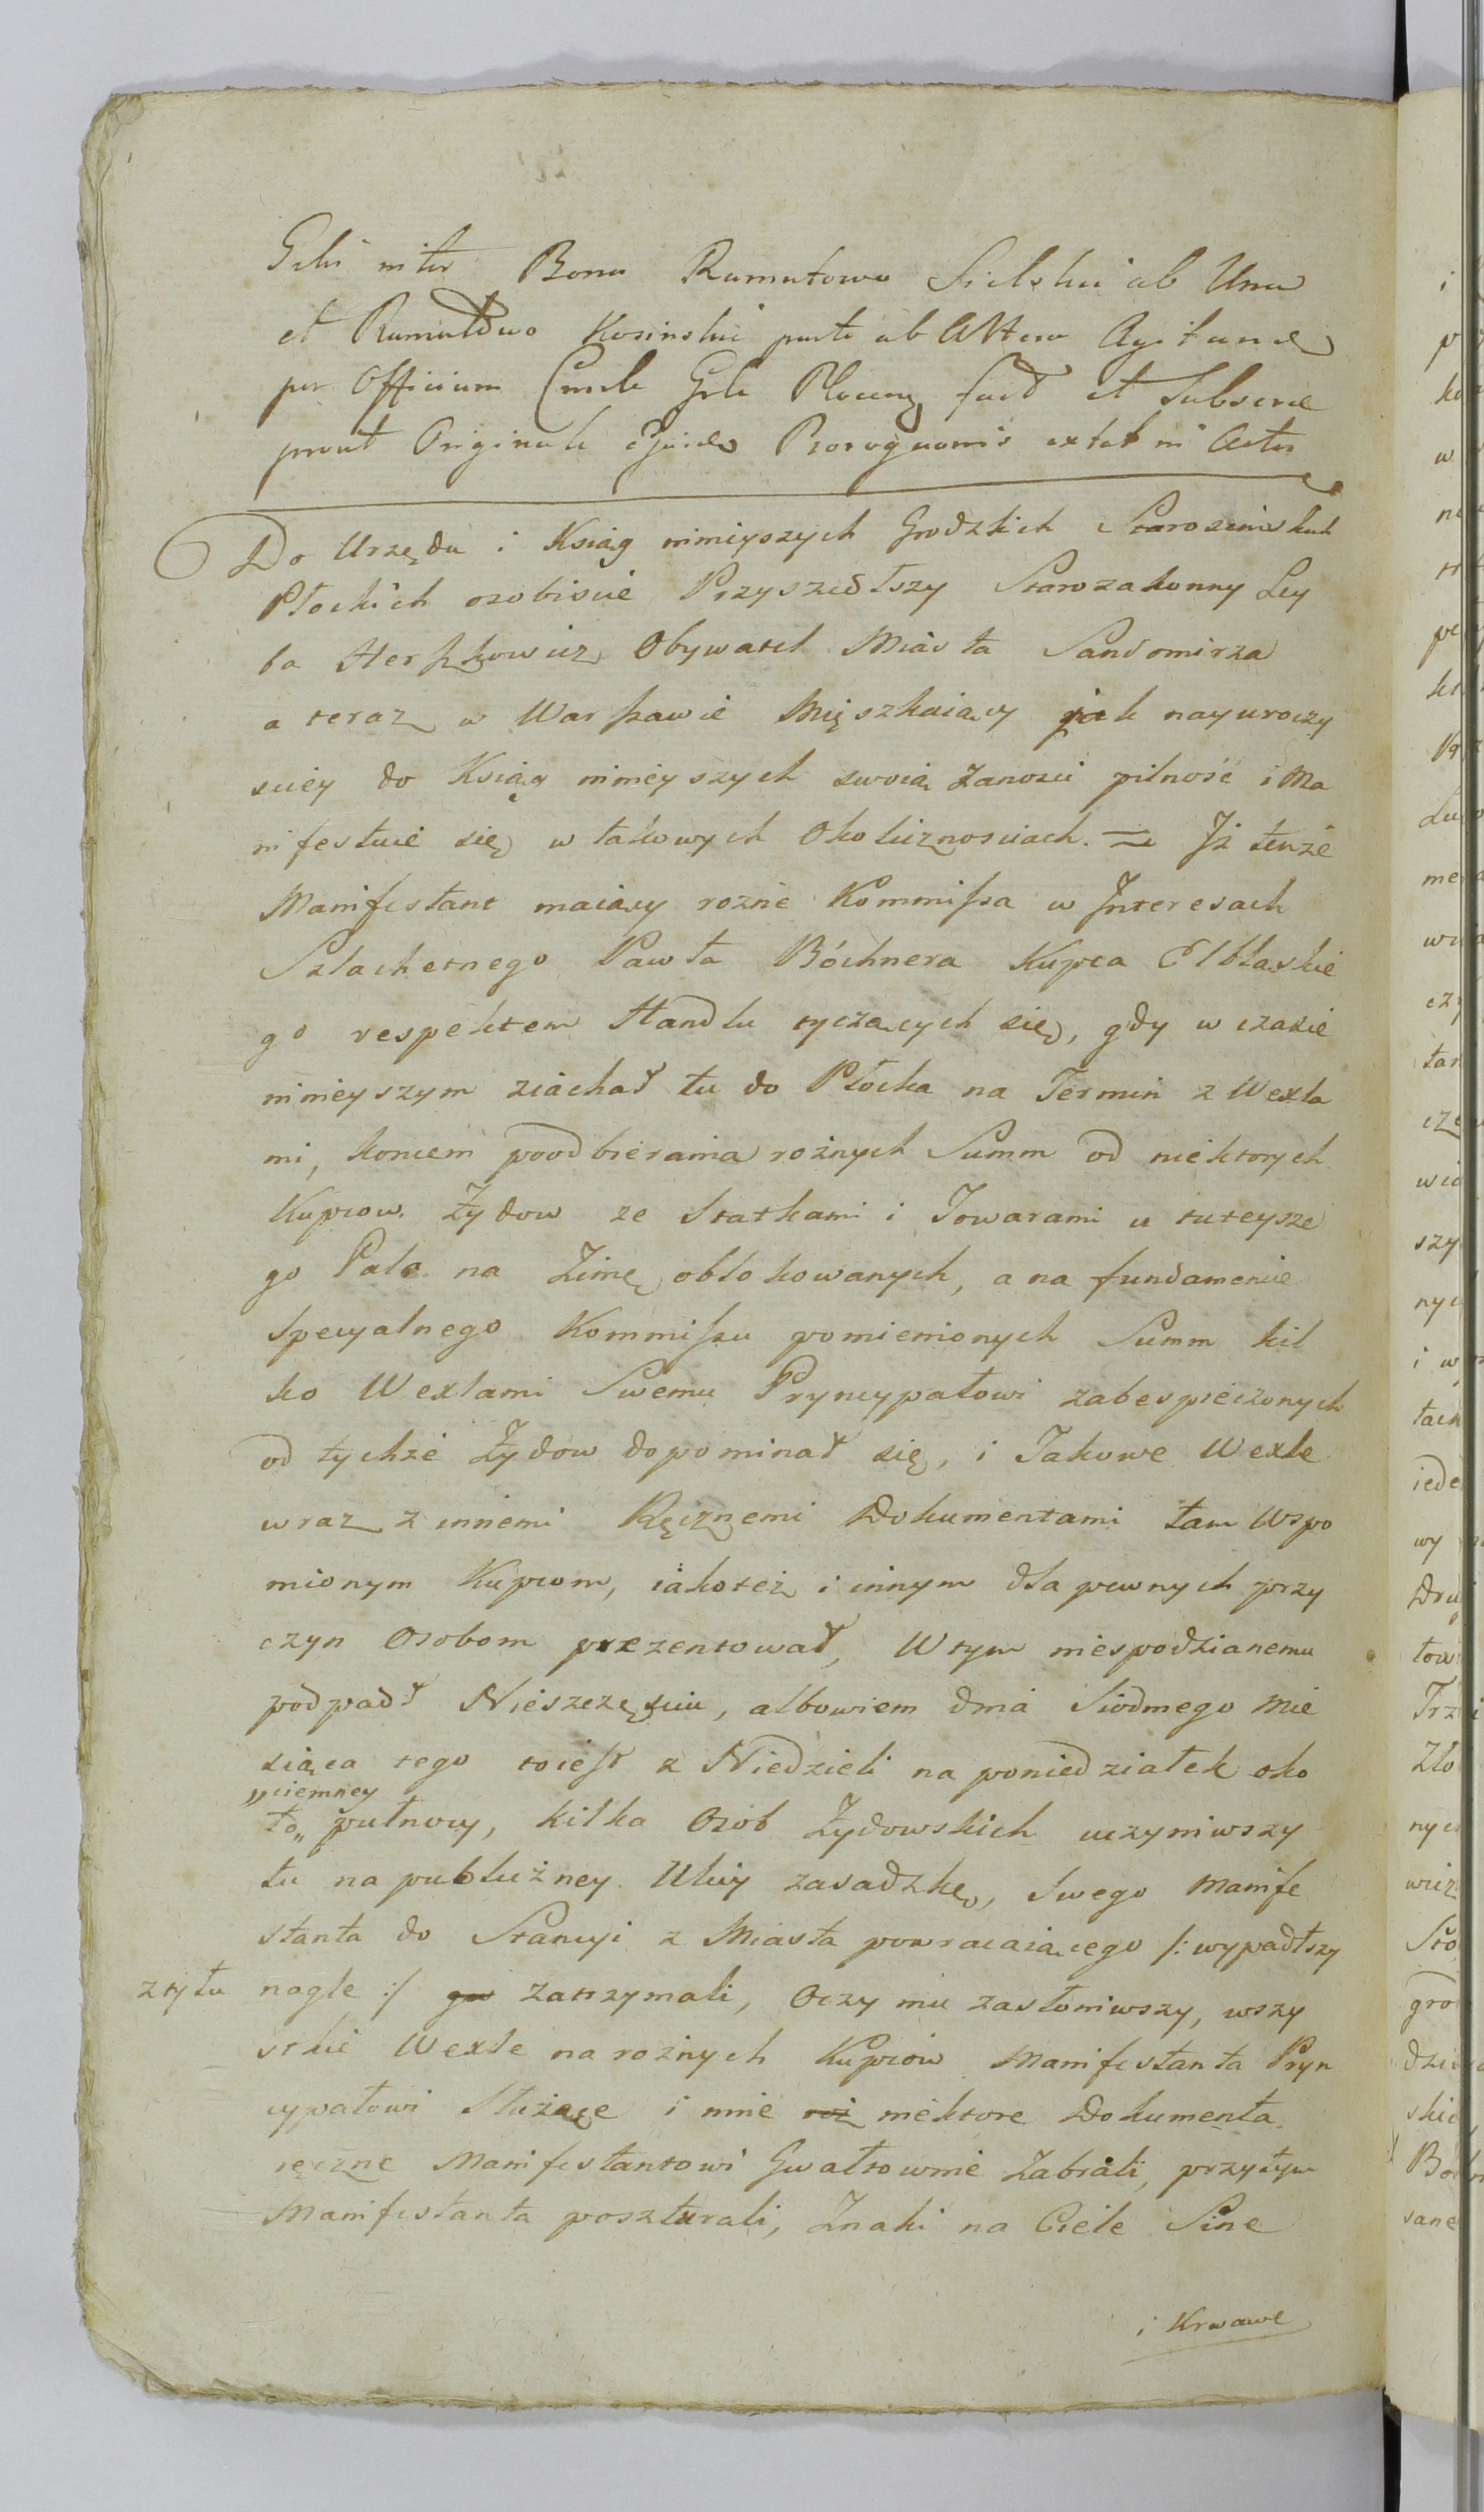 Bona Rumutowo Sielski ab Una
et Kosinski parte ab Altera
per Officium fact et Subscrie
prout Originale extat in Actis
Do Urzędu i Ksiąg ninieyszych Grodzkich Starosciнskich
Płockich osobiscie Przyszedłszy Starozakonny Ley
ba Herszkowicz Obywatel Miasta Sandomirza
a teraz w Warszawie Mięszkaiący jak nayuroczy
sciey do Ksiąg ninieyszych swoią Zanosci pilność i Ma
nifestuie się w takowych Okolicznosciach. = Jż tenże
Manifestant maiący rozne Kommissa w Jnteresach
Szlachetnego Pawła Bóchnera Kupca Elbląskie
go respektem Handlu tyczących się, gdy w czasie
ninieyszym ziachał tu do Płocka na Termin z Wexla
mi, koncem poodbierania rożnych Summ od niektorych
Kupcow Żydow ze Statkami i Towarami u tuteysze
go Pala na Zimę oblokowanych, a na fundamencie
Specyalnego Kommissu pomienionych Summ kil
ko Wexlami Swemu Pryncypałowi zabespieczonych
od tychże Żydow dopominał się, i Takowe Wexle
wraz z innemi Ręcznemi Dokumentami tam Wspo
mionym Kupcom, iakoteż i innym dla pewnych przy
czyn Osobom prezentował, W tym niespodzianemu
podpadł Nieszczęsciu, albowiem dnia Siodmego Mie
siąca tego toiest z Niedzieli na poniedziałek oko
„ciemney
ło„ pułnocy, kilka Osob Żydowskich uczyniwszy
tu na publiczney Ulicy zasadzkę, Swego Manife
stanta do Stancyi z Miasta powracaiącego /: wypadłszy
z tyłu nagle :/ go zatrzymali, Oczy mu zasłoniwszy, wszy
stkie Wexle na rożnych Kupców Manifestanta Pryn
cypałowi Służące i inne roż niektore Dokumenta
ręczne Manifestantowi Gwałtownie Zabrali, przytym
Manifestanta poszturali, Znaki na Ciele Sine
i Krwawe